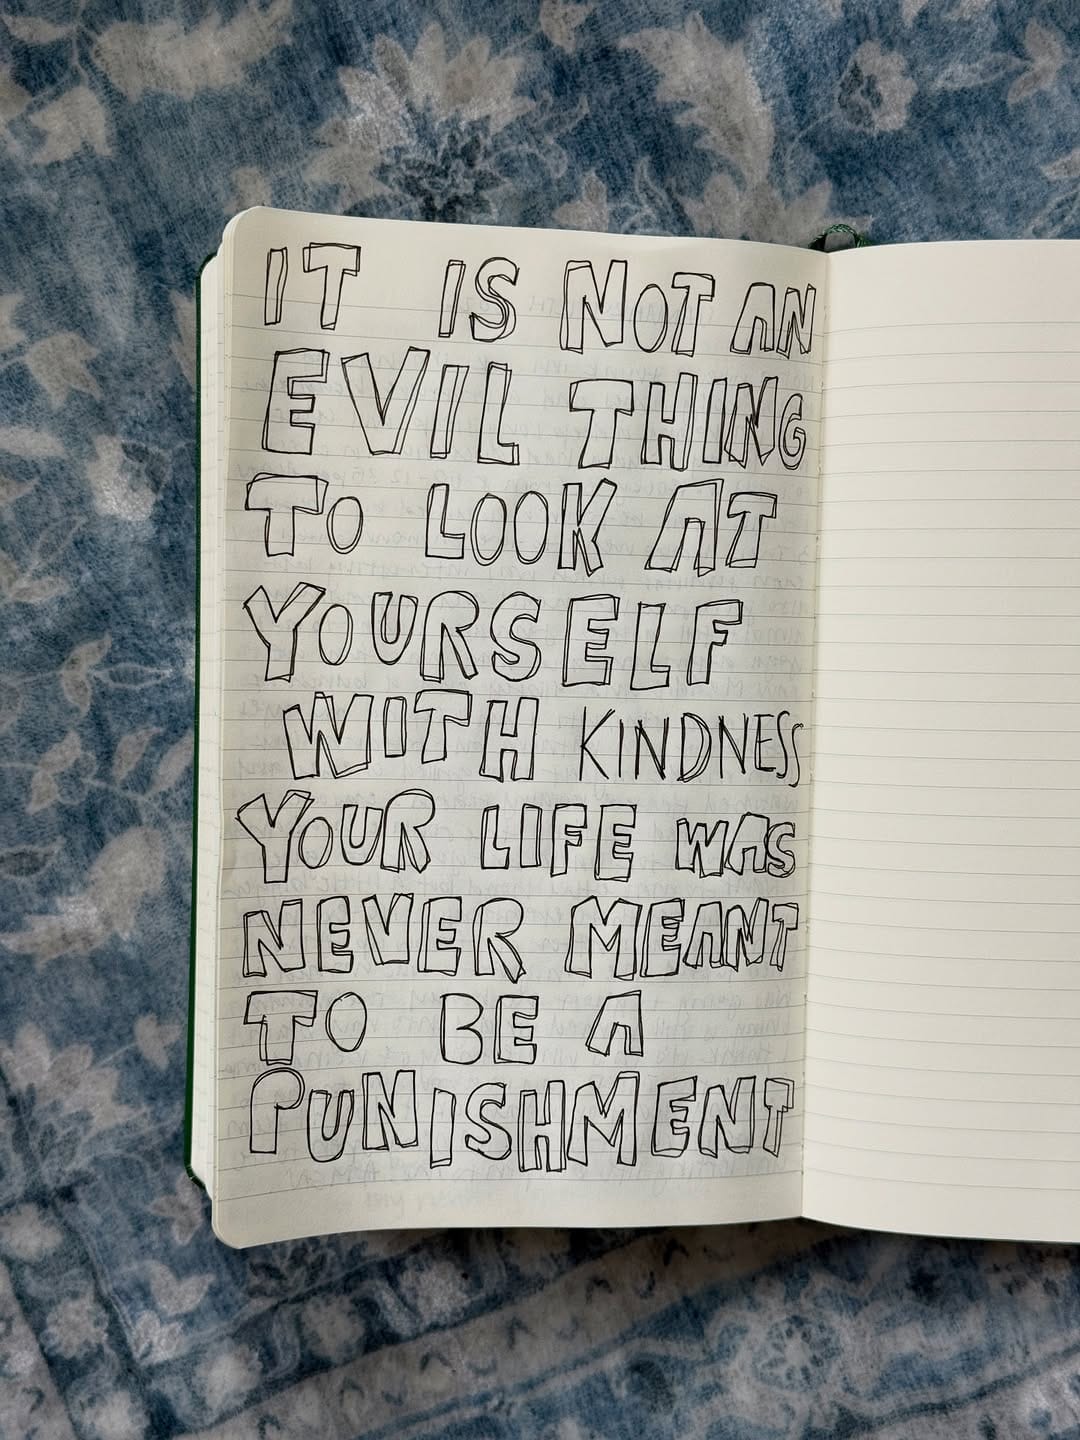 IT IS NOT AN
EVIL THING
TO LOOK AT
YOURSELF
WITH KINDNESS
YOUR LIFE WAS
NEVER MEANT
TO BE A
PUNISHMENT